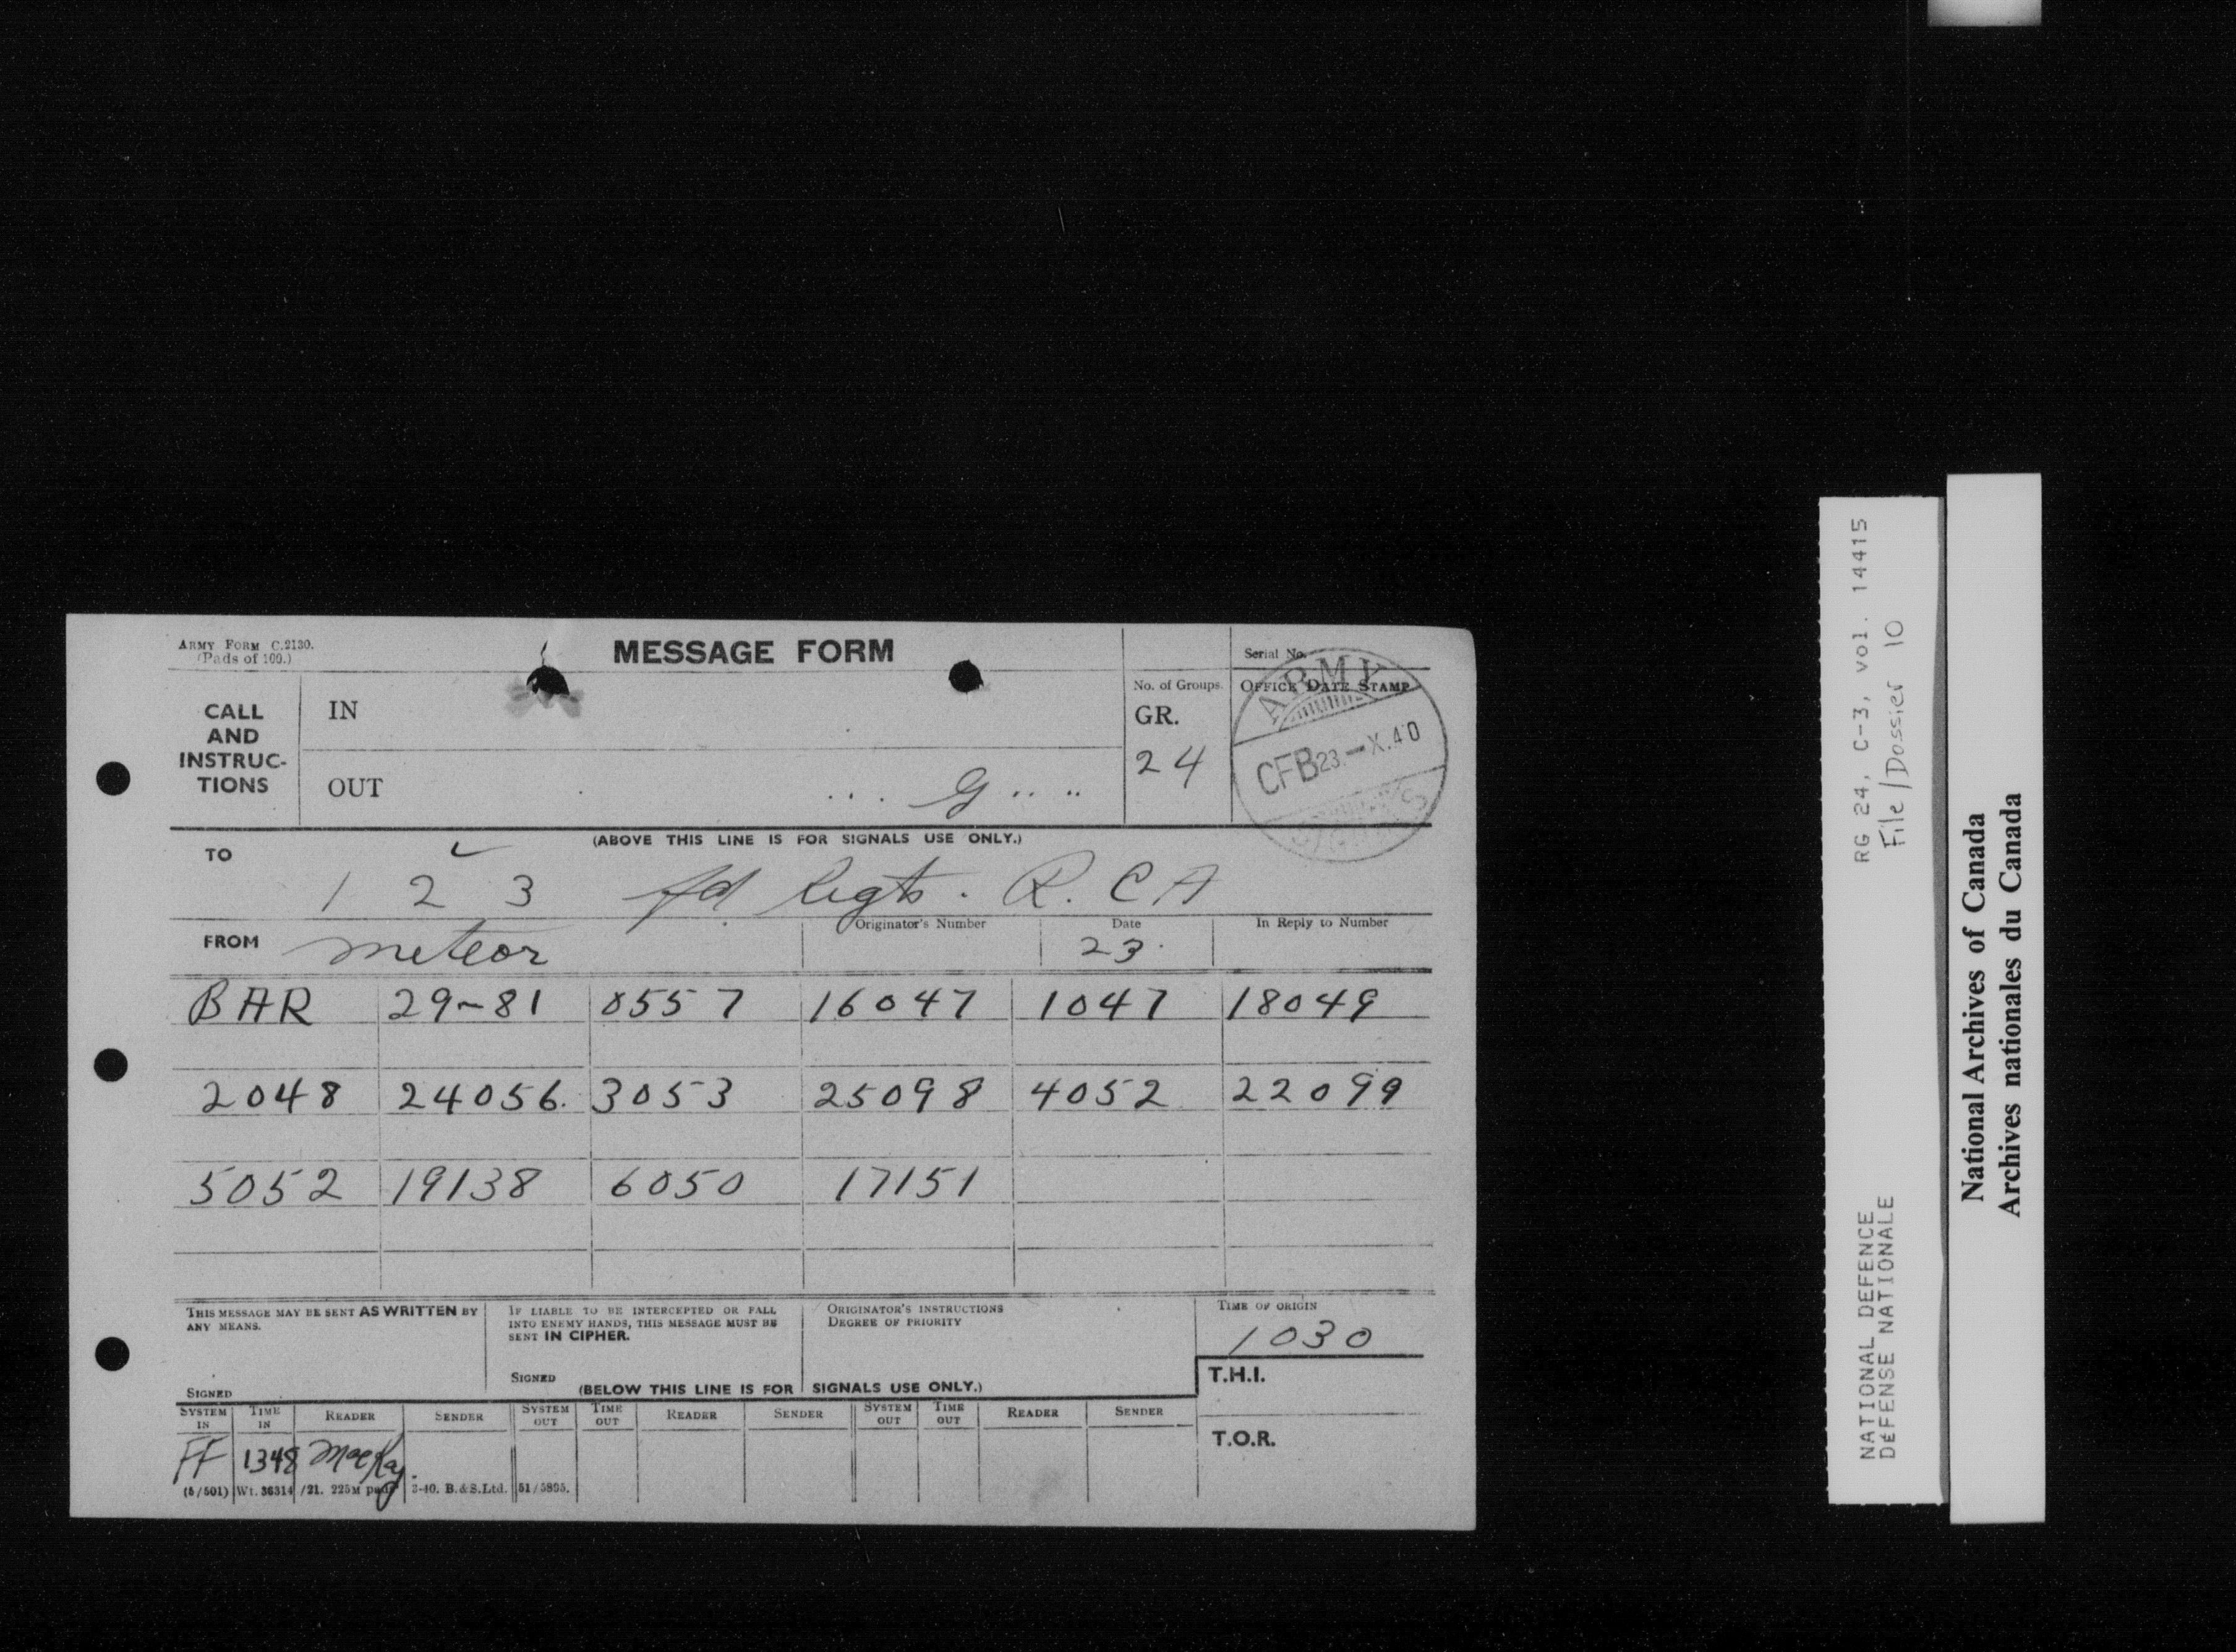 ARMY FORM C.2130.
(Pads of 100.)
MESSAGE FORM
Serial No.
CALL AND INSTRUC-TIONS
IN
No. of Groups.
GR.
24
OFFICE DATE STAMP
ARMY
CFB 23.-X.40
SIGNALS
OUT
... G .. ..
(ABOVE THIS LINE IS FOR SIGNALS USE ONLY.)
TO
1 2 3 fd Regts. R.C A
FROM
meteor
Originator's Number
Date
23.
In Reply to Number
BAR 29-81 0557 16047 1047 18049
2048 24056. 3053 25098 4052 22099
5052 19138 6050 17151
THIS MESSAGE MAY BE SENT AS WRITTEN BY ANY MEANS.
SIGNED
IF LIABLE TO BE INTERCEPTED OR FALL INTO ENEMY HANDS, THIS MESSAGE MUST BE SENT IN CIPHER.
SIGNED
ORIGINATOR'S INSTRUCTIONS
DEGREE OF PRIORITY
TIME OF ORIGIN
1030
(BELOW THIS LINE IS FOR SIGNALS USE ONLY.)
T.H.I.
SYSTEM IN TIME IN READER SENDER SYSTEM OUT TIME OUT READER SENDER SYSTEM OUT TIME OUT READER SENDER
T.O.R.
FF 1348 MacKay.
(5/501) Wt. 36314 /21. 225M pads 3-40. B.&S.Ltd. 51/5895.
RG 24, C-3, vol. 14415
File/Dossier 10
NATIONAL DEFENCE
DÉFENSE NATIONALE
National Archives of Canada
Archives nationales du Canada